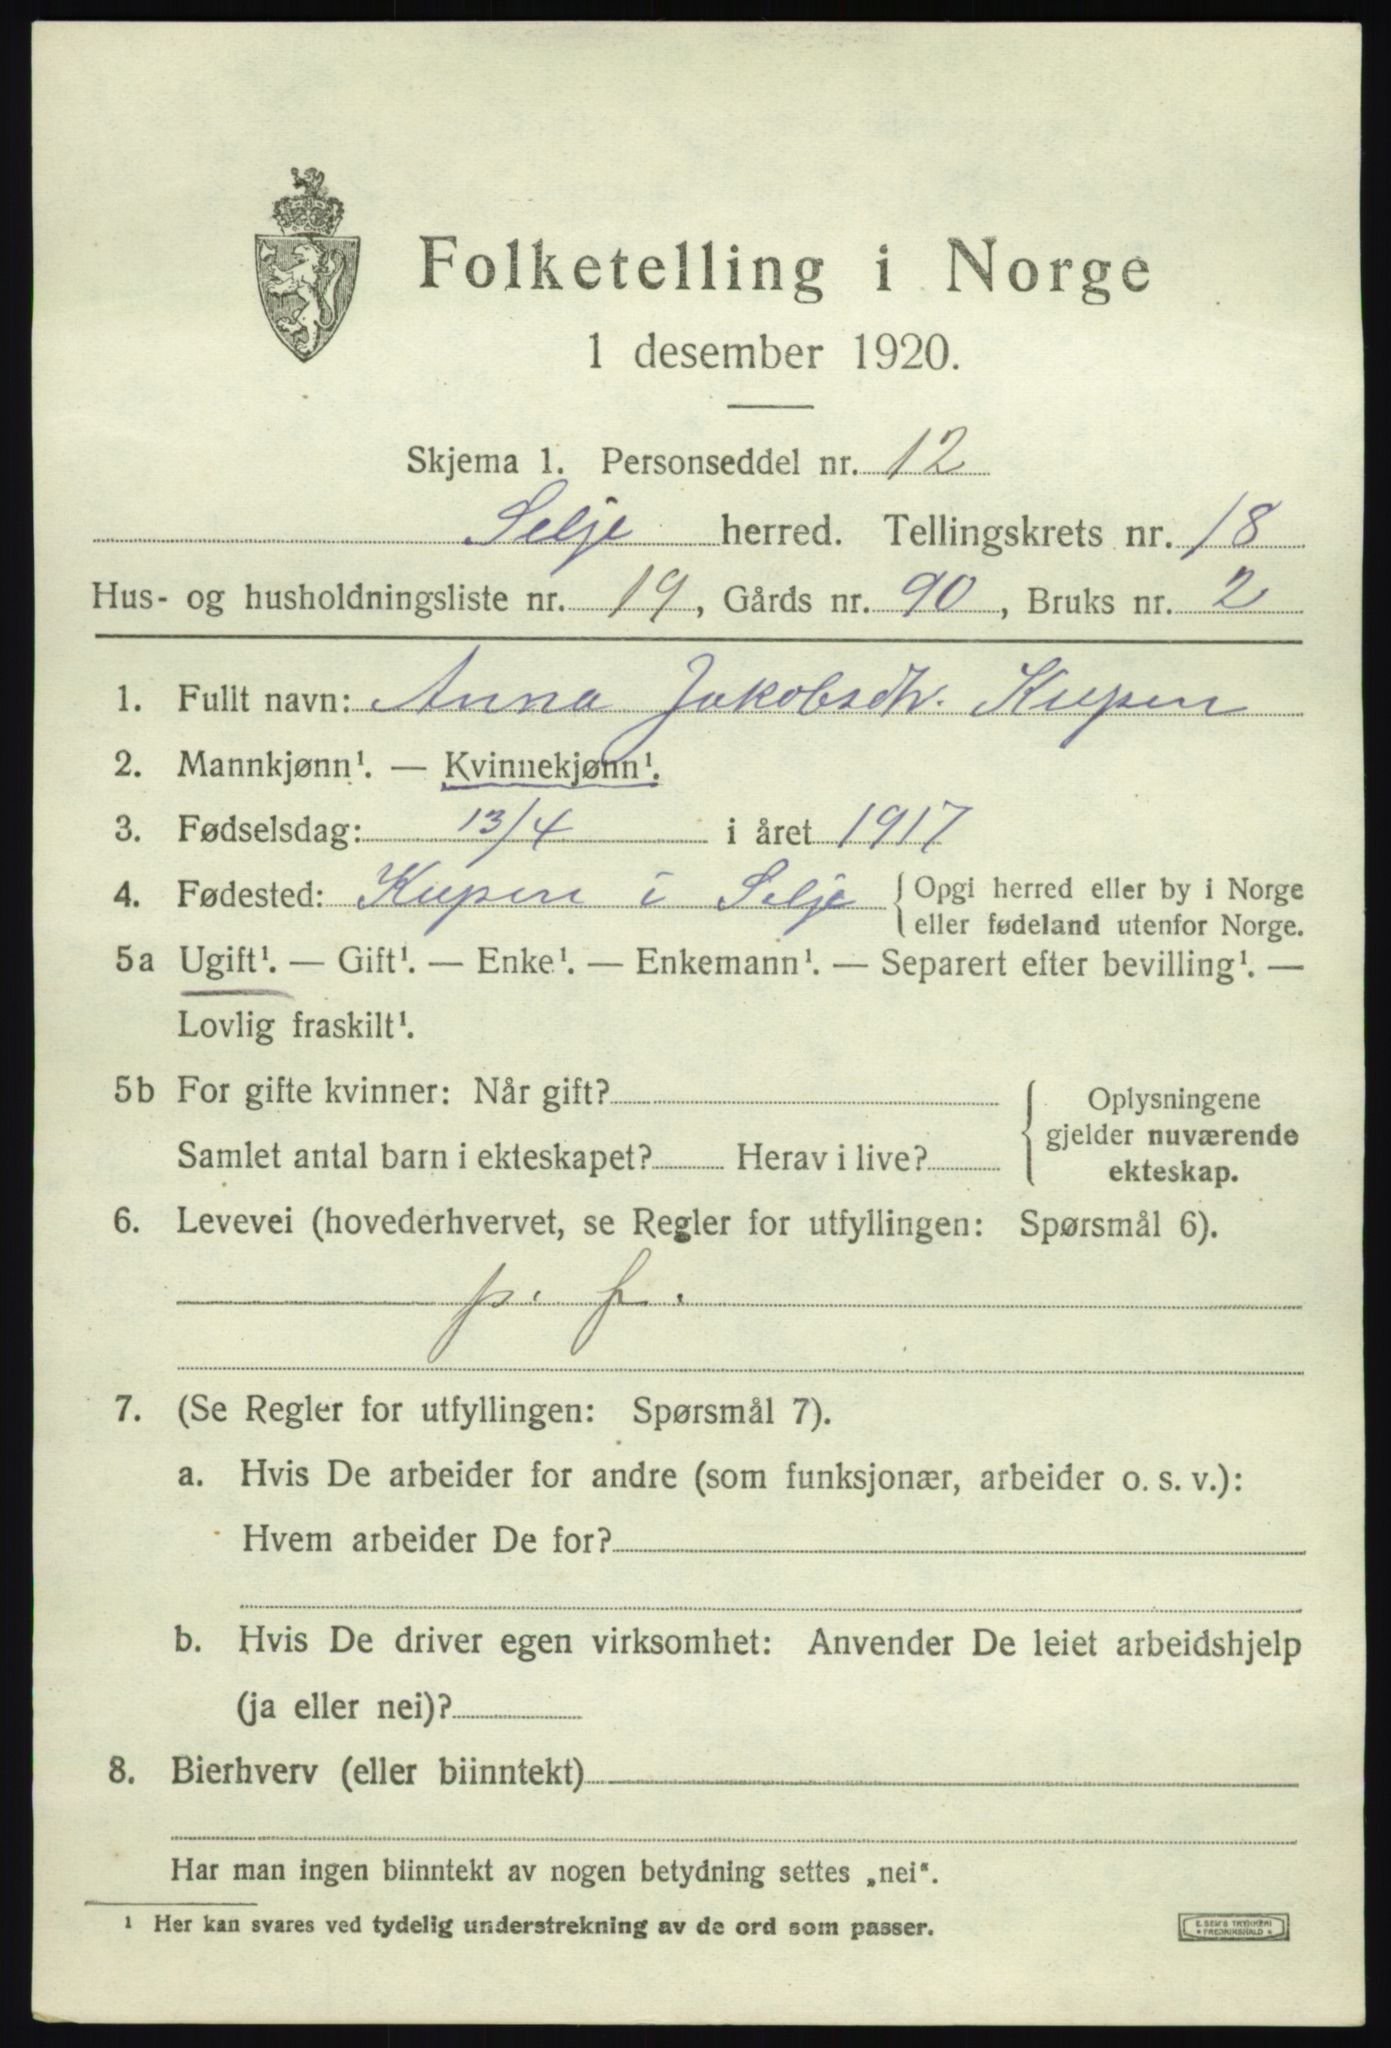 Folketelling i Norge
1 desember 1920.
Skjema 1. Personseddel nr. 12
Selje herred. Tellingskrets nr. 18
Hus- og husholdningsliste nr. 19, Gårds nr. 90, Bruks nr. 2
1. Fullt navn: Anna Jakobsdtr. Kupen
2. Mannkjønn¹. — Kvinnekjønn¹.
3. Fødselsdag: 13/4 i året 1917
4. Fødested: Kupen i Selje { Opgi herred eller by i Norge
eller fødeland utenfor Norge.
5a Ugift¹. — Gift¹. — Enke¹. — Enkemann¹. — Separert efter bevilling¹. —
Lovlig fraskilt¹.
5b For gifte kvinner: Når gift? { Oplysningene
gjelder nuværende
Samlet antal barn i ekteskapet? Herav i live?
ekteskap.
6. Levevei (hovederhvervet, se Regler for utfyllingen: Spørsmål 6).
p. f.
7. (Se Regler for utfyllingen: Spørsmål 7).
a. Hvis De arbeider for andre (som funksjonær, arbeider o. s. v.):
Hvem arbeider De for?
b. Hvis De driver egen virksomhet: Anvender De leiet arbeidshjelp
(ja eller nei)?
8. Bierhverv (eller biinntekt)
Har man ingen biinntekt av nogen betydning settes „nei“.
¹ Her kan svares ved tydelig understrekning av de ord som passer.
E. SEM'S TRYKKERI
* FREDRIKSHALD *